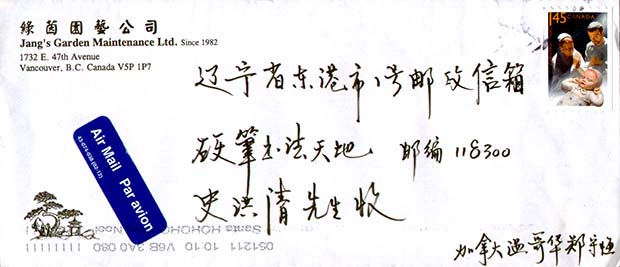 綠茵園藝公司
Jang's Garden Maintenance Ltd. Since 1982
1732 E. 47th Avenue
Vancouver, B.C. Canada V5P 1P7
145 CANADA
辽宁省东港市1号邮政信箱
硬筆书法天地 邮编 118300
史洪清先生收
Air Mail Par avion
43-074-038 (02-12)
加拿大温哥华郑宇恒
051211 10:10 V6B 3A0 080
Santa HOHOHO